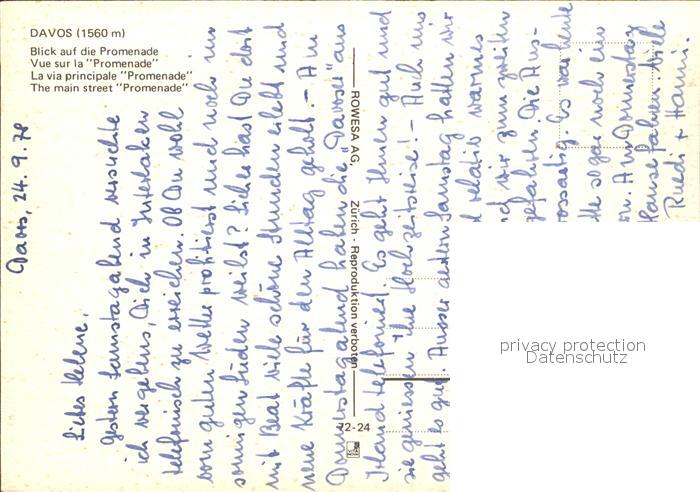 DAVOS (1560 m)
Blick auf die Promenade
Vue sur la "Promenade"
La via principale "Promenade"
The main street "Promenade"
Davos, 24. 9. 78
Liebes Helene,
gestern Samstagabend versuchte
ich vergebens, Dich in Interlaken
telefonisch zu erreichen. Ob Du wohl
vom guten Wetter profitierst und noch im
sonnigen Süden weilst? Sicher hast Du dort
mit Beat viele schöne Stunden erlebt und
neue Kräfte für den Alltag geholt. – Am
Donnerstagabend haben die "Davoser" aus
Irland telefoniert. Es geht Ihnen gut und
sie geniessen ihre Hochzeitsreise! – Auch uns
geht es gut. Ausser gestern Samstag hatten wir
relativ warmes
wir zum zweiten
gefahren. Die Aus-
Es war heute
sogar noch ein
Am Donnerstag
fahren. Viele
Ruedi + Hanni.
ROWESA AG, Zürich - Reproduktion verboten
72-24
privacy protection
Datenschutz